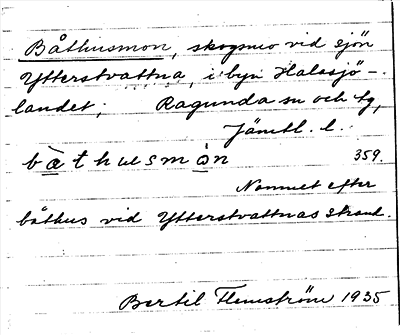 Båthusmon, skogsmo vid sjön
Ytterstvattna, i byn Halasjö-
landet; Ragunda sn och tg,
Jämtl. l.
båthusmòn 359.
Namnet efter
båthus vid Ytterstvattnas strand.
Bertil Flemström 1935